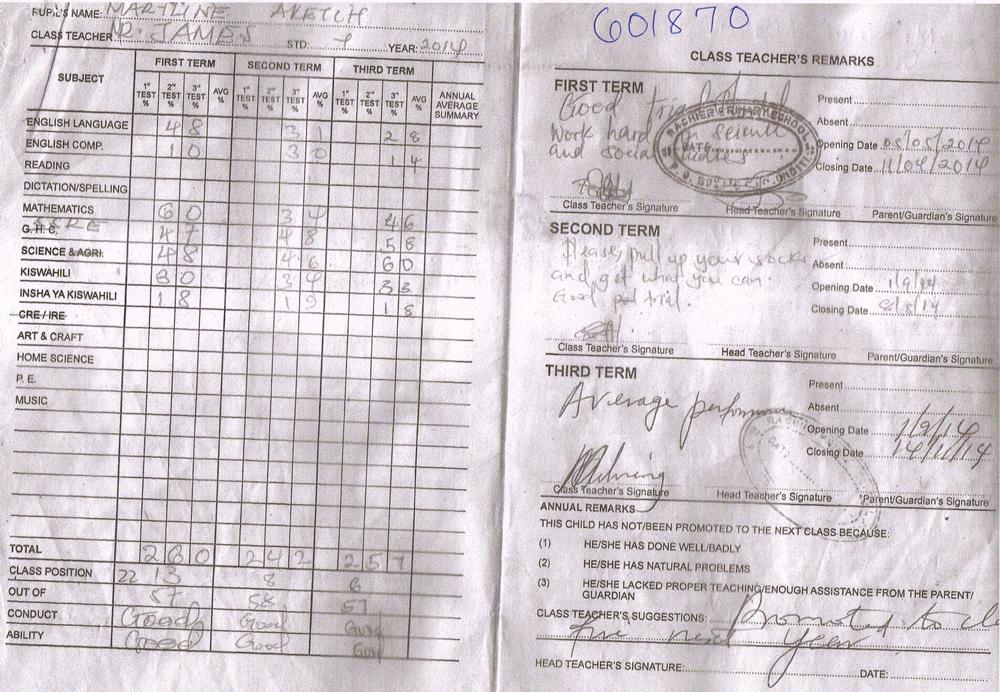 PUPIL'S NAME: MARYLINE AKETCH
CLASS TEACHER MR. JAMES STD: YEAR: 2014
SUBJECT FIRST TERM SECOND TERM THIRD TERM ANNUAL AVERAGE SUMMARY
1st TEST % 2nd TEST % 3rd TEST % AVG % 1st TEST % 2nd TEST % 3rd TEST % AVG % 1st TEST % 2nd TEST % 3rd TEST % AVG %
ENGLISH LANGUAGE 48 31 28
ENGLISH COMP. 10 30 14
READING
DICTATION/SPELLING
MATHEMATICS 60 34 46
G.H.C. 47 48 58
SCIENCE & AGRI. 48 46 60
KISWAHILI 80 34 33
INSHA YA KISWAHILI 18 19 18
CRE / IRE
ART & CRAFT
HOME SCIENCE
P. E.
MUSIC
TOTAL 260 242 257
CLASS POSITION 22 13 8 6
OUT OF 57 58 57
CONDUCT Good Good Good
ABILITY Good Good Good
601870
CLASS TEACHER'S REMARKS
FIRST TERM
Good trial
Work hard in science
and social studies
Present
Absent
Opening Date 05/05/2014
Closing Date 11/04/2014
RACHIER PRIMARY SCHOOL
DATE
Class Teacher's Signature Head Teacher's Signature Parent/Guardian's Signature
SECOND TERM
Please, pull up your socks
and get what you can.
Good trial.
Present
Absent
Opening Date 1/9/14
Closing Date 8/8/14
Class Teacher's Signature Head Teacher's Signature Parent/Guardian's Signature
THIRD TERM
Average performance
Present
Absent
Opening Date 1/9/14
Closing Date 14/11/14
Class Teacher's Signature Head Teacher's Signature Parent/Guardian's Signature
ANNUAL REMARKS
THIS CHILD HAS NOT/BEEN PROMOTED TO THE NEXT CLASS BECAUSE:
(1) HE/SHE HAS DONE WELL/BADLY
(2) HE/SHE HAS NATURAL PROBLEMS
(3) HE/SHE LACKED PROPER TEACHING/ENOUGH ASSISTANCE FROM THE PARENT/
GUARDIAN
CLASS TEACHER'S SUGGESTIONS: Promoted to
next year
HEAD TEACHER'S SIGNATURE: DATE: